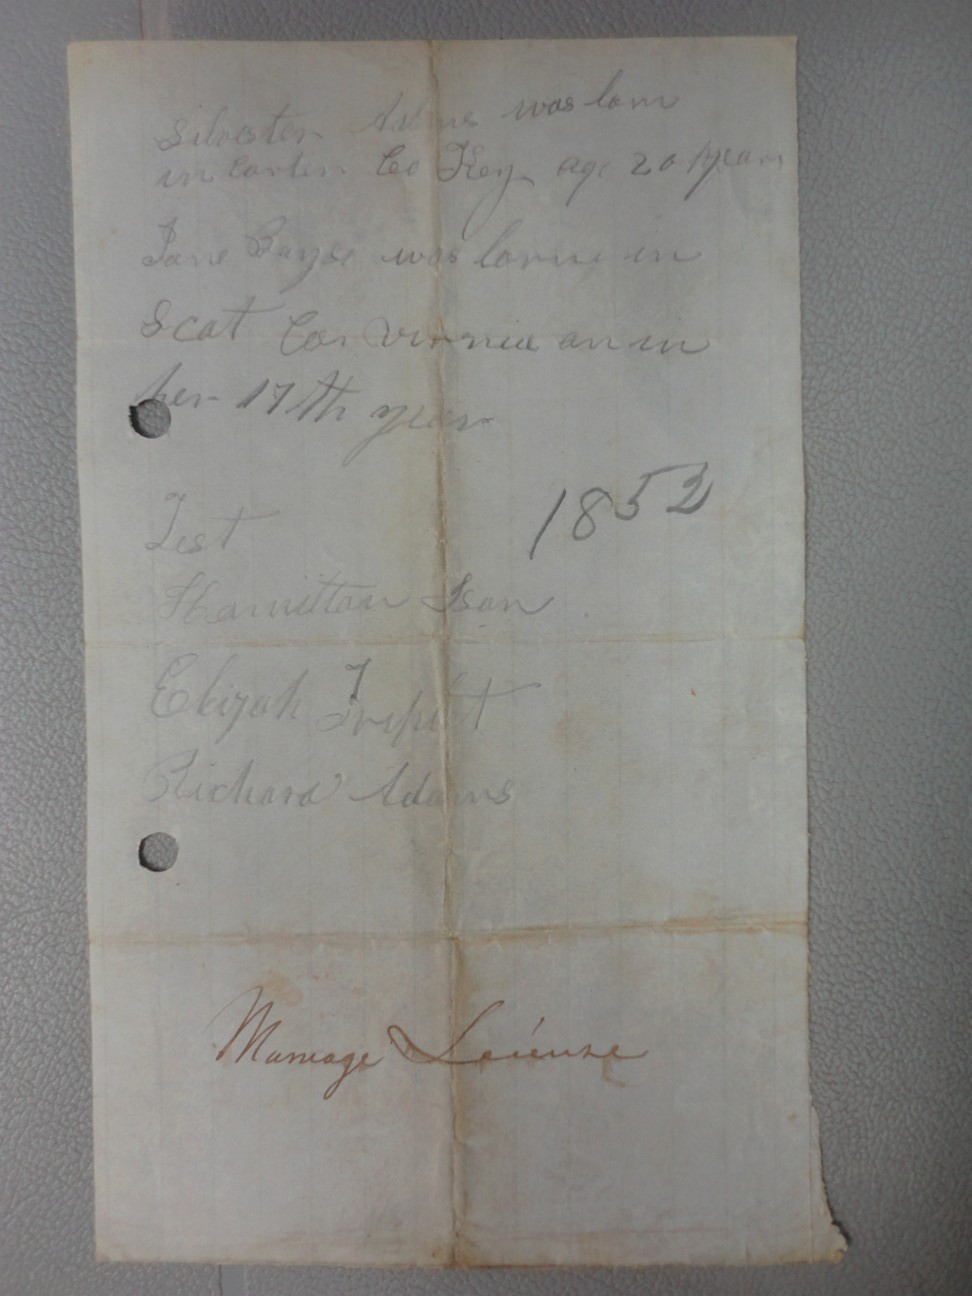 Silvester Adams was born
in Carter Co Key age 20 years
Jane Bayse was borne in
Scot Co. Virnia an in
her 17th year
1853
Test
Hamilton Ison
Elizah Triplet
Richard Adams
Marriage Leicense